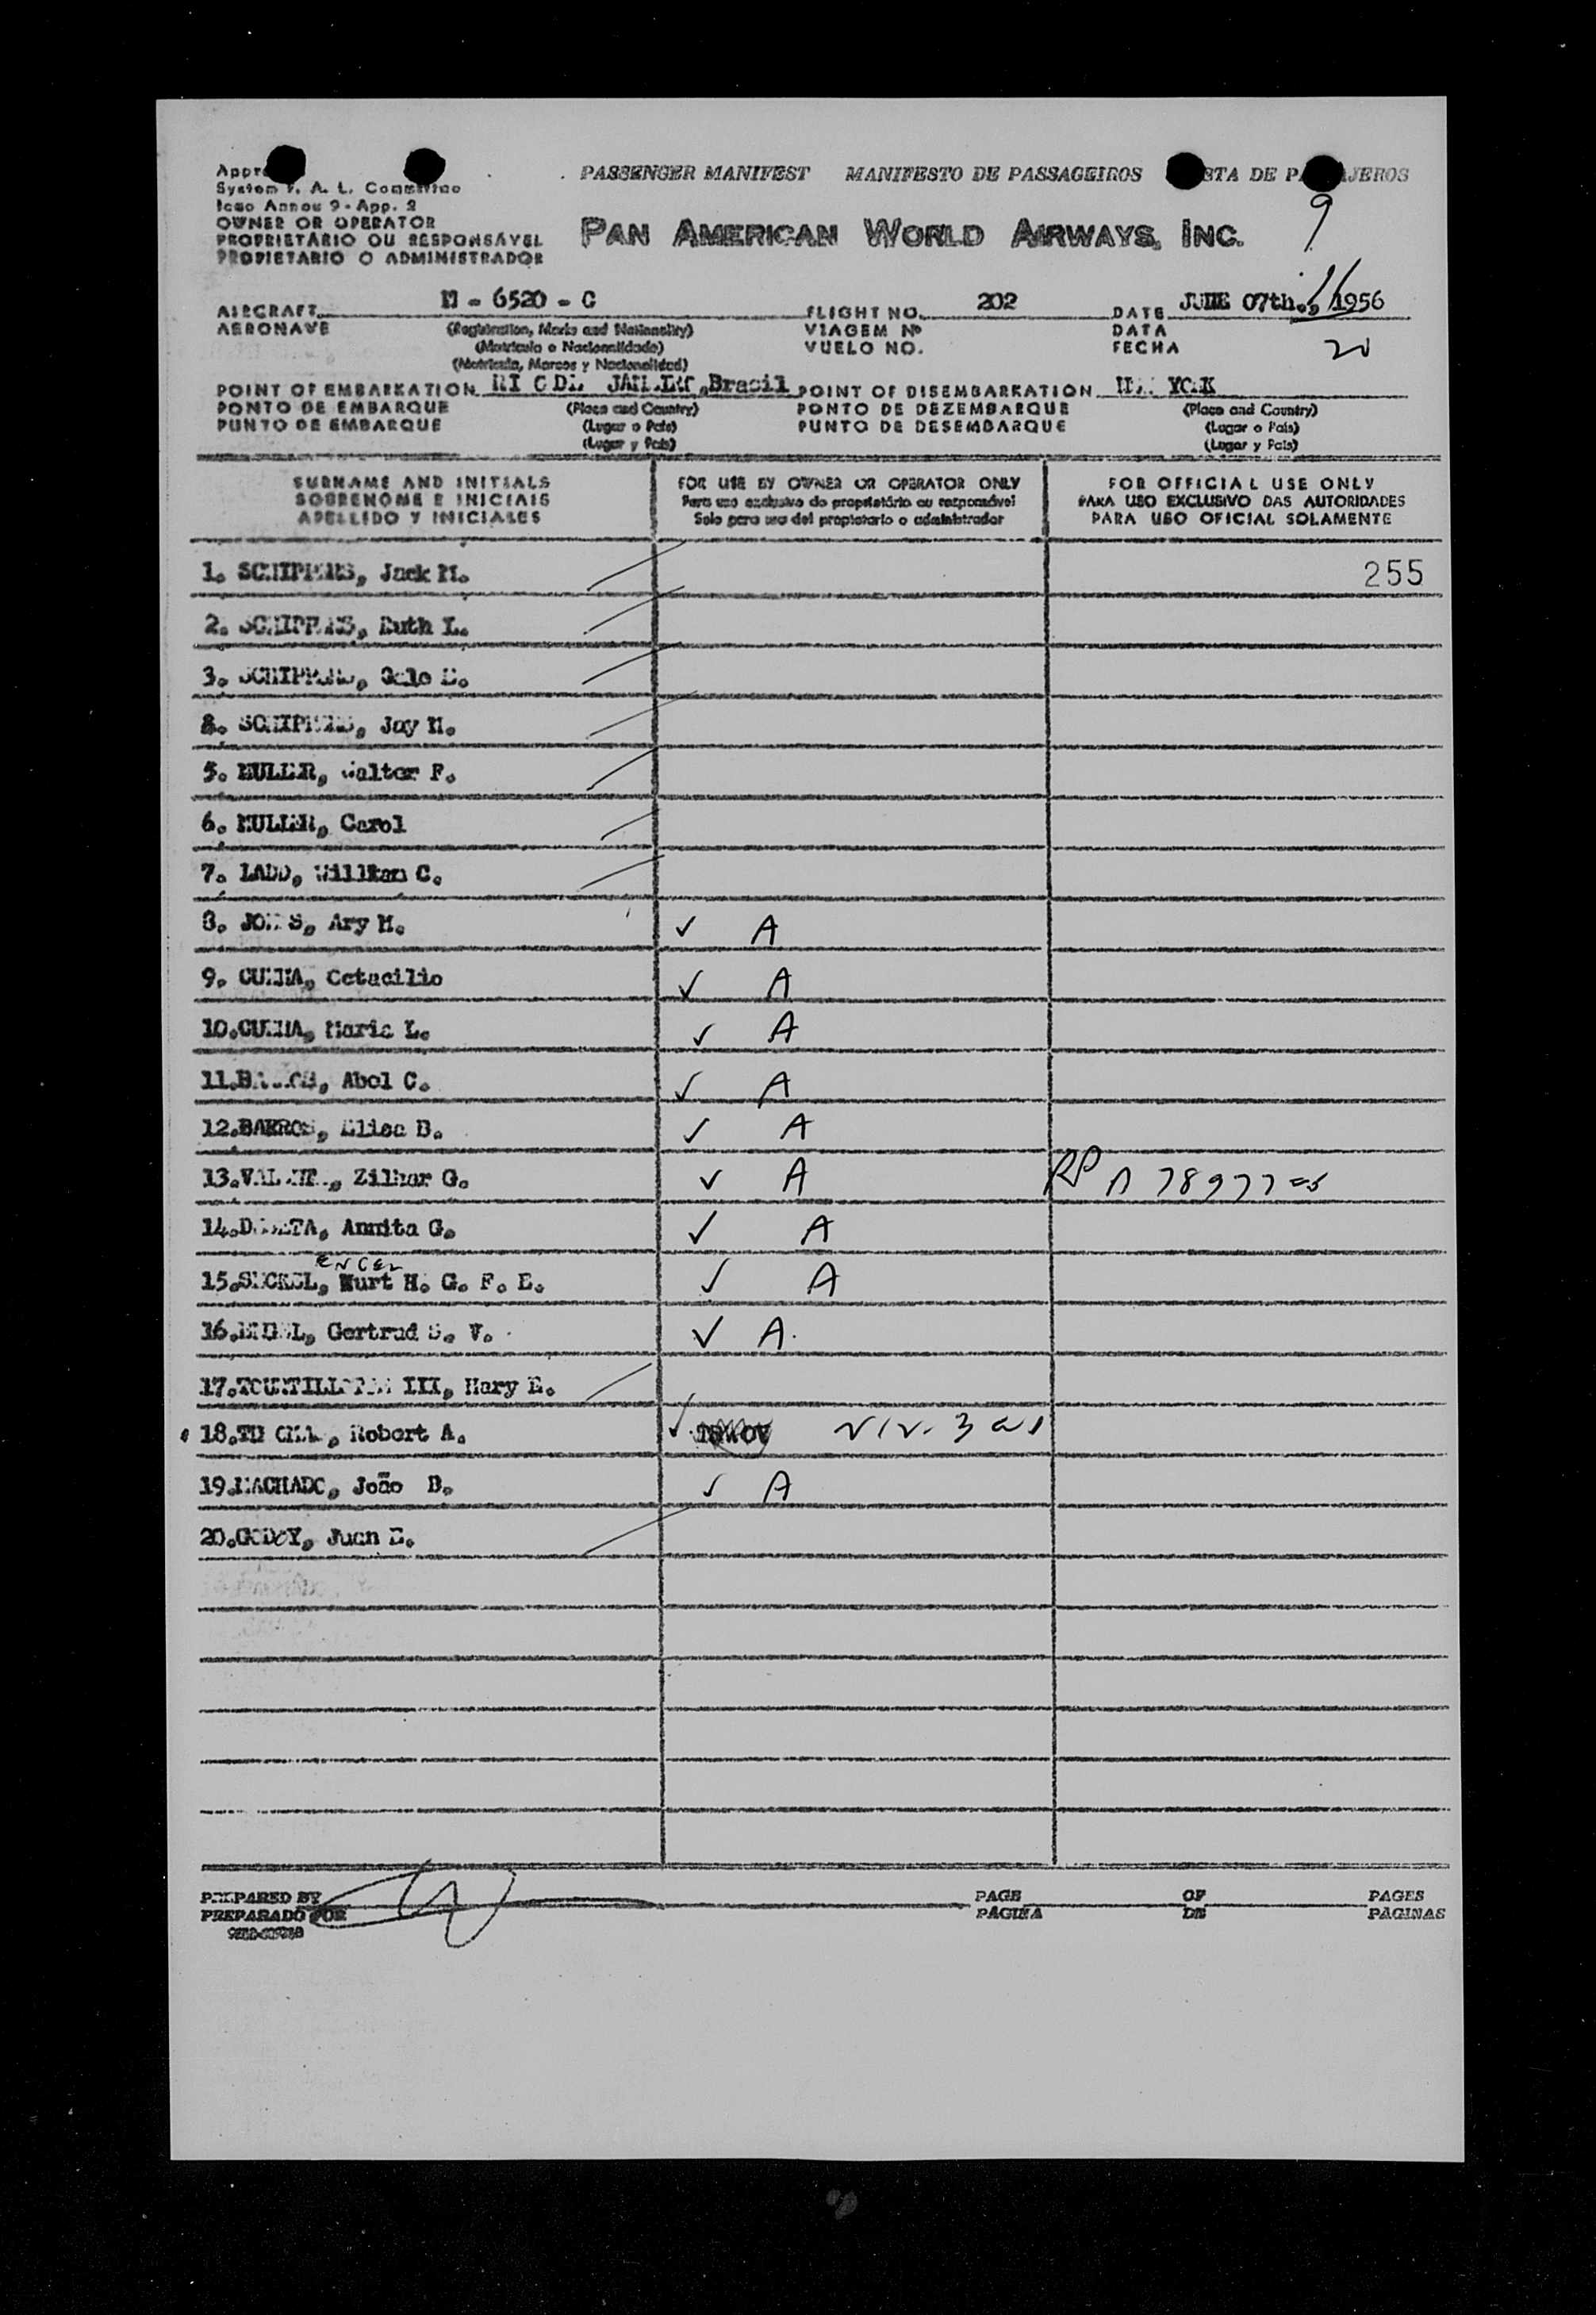 PASSENGER MANIFEST MANIFESTO DE PASSAGEIROS DE
System F. A. L. Committee
Icao Annex 9 - App. 2
OWNER OR OPERATOR
PROPRIETÁRIO OU RESPONSÁVEL
PROPIETARIO O ADMINISTRADOR
PAN AMERICAN WORLD AIRWAYS, INC.
9
AIRCRAFT N - 6520 - C FLIGHT NO. 202 DATE JUNE 07th., 1956
AERONAVE (Registration, Marks and Nationality) VIAGEM Nº DATA
(Matrícula e Nacionalidade) VUELO NO. FECHA 20
(Matrícula, Marcas y Nacionalidad)
POINT OF EMBARKATION RIO DE JANEIRO, Brasil POINT OF DISEMBARKATION NEW YORK
PONTO DE EMBARQUE (Place and Country) PONTO DE DEZEMBARQUE (Place and Country)
PUNTO DE EMBARQUE (Lugar o País) PUNTO DE DESEMBARQUE (Lugar o País)
(Lugar y País) (Lugar y País)
SURNAME AND INITIALS FOR USE BY OWNER OR OPERATOR ONLY FOR OFFICIAL USE ONLY
SOBRENOME E INICIAIS Para uso exclusivo do proprietário ou responsável PARA USO EXCLUSIVO DAS AUTORIDADES
APELLIDO Y INICIALES Solo para uso del propietario o administrador PARA USO OFICIAL SOLAMENTE
1. SCHIPPERS, Jack M. 255
2. SCHIPPERS, Ruth L.
3. SCHIPPERS, Gale
4. SCHIPPERS, Jay M.
5. MULLER, Walter F.
6. MULLER, Carol
7. LADD, William C.
8. JONES, Ary M. ✓ A
9. CUNHA, Octacilio ✓ A
10. CUNHA, Maria L. ✓ A
11. BARROS, Abel C. ✓ A
12. BARROS, Elisa B. ✓ A
13. Zilmar G. ✓ A RP A
14. Annita G. ✓ A
15. Kurt H. G. F. E. ✓ A
16. Gertrud S. V. ✓ A.
17. III, Mary E.
18. Robert A. ✓
19. MACHADO, João B. ✓ A
20. GODOY, Juan E.
PREPARED BY PAGE OF PAGES
PREPARADO POR PÁGINA DE PÁGINAS